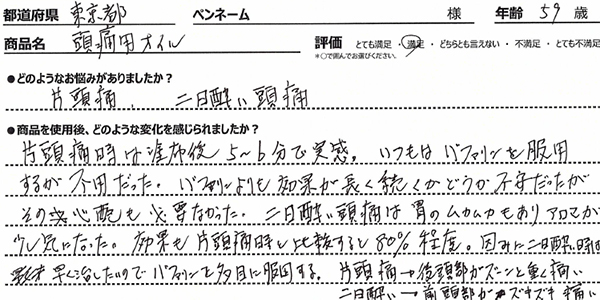 都道府県 東京都 ペンネーム 様 年齢 59 歳
商品名 頭痛用オイル 評価 とても満足 ・ 満足 ・ どちらとも言えない ・ 不満足 ・ とても不満足
*○で囲んでお選びください。
●どのようなお悩みがありましたか？
片頭痛、 二日酔い頭痛
●商品を使用後、どのような変化を感じられましたか？
片頭痛時は塗布後 5〜6分で実感。 いつもは バファリンを服用
するが 不用だった。 バファリンよりも 効果が長く続くかどうか不安だったが
その 心配も 必要なかった。 二日酔い頭痛は 胃のムカムカもあり アロマが
少し気になった。 効果も 片頭痛時と比較すると 80% 程度。 因みに二日酔い時は
早く治したいので バファリンを多目に服用する。 片頭痛→後頭部がズーンと重く痛い
二日酔い→前頭部がズキズキ痛い